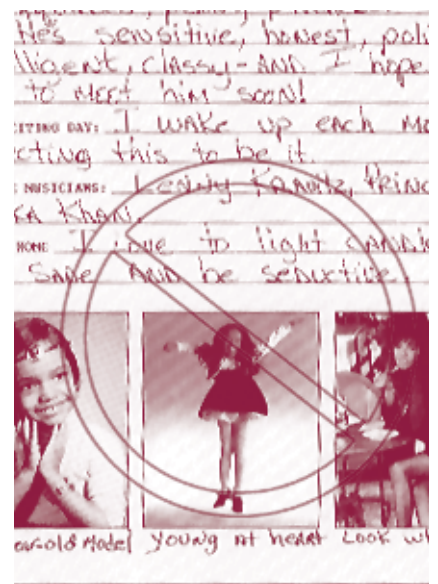 He's sensitive, honest, poli
lligent, classy - AND I hope
to meet him soon!
CITING DAY: I wake up each Mo
cting this to be it.
E MUSICIANS: Lenny Kravitz, Princ
KA Khan.
HOME I love to light candle
Sade AND be seductive
ear-old Model Young at heart Look wh